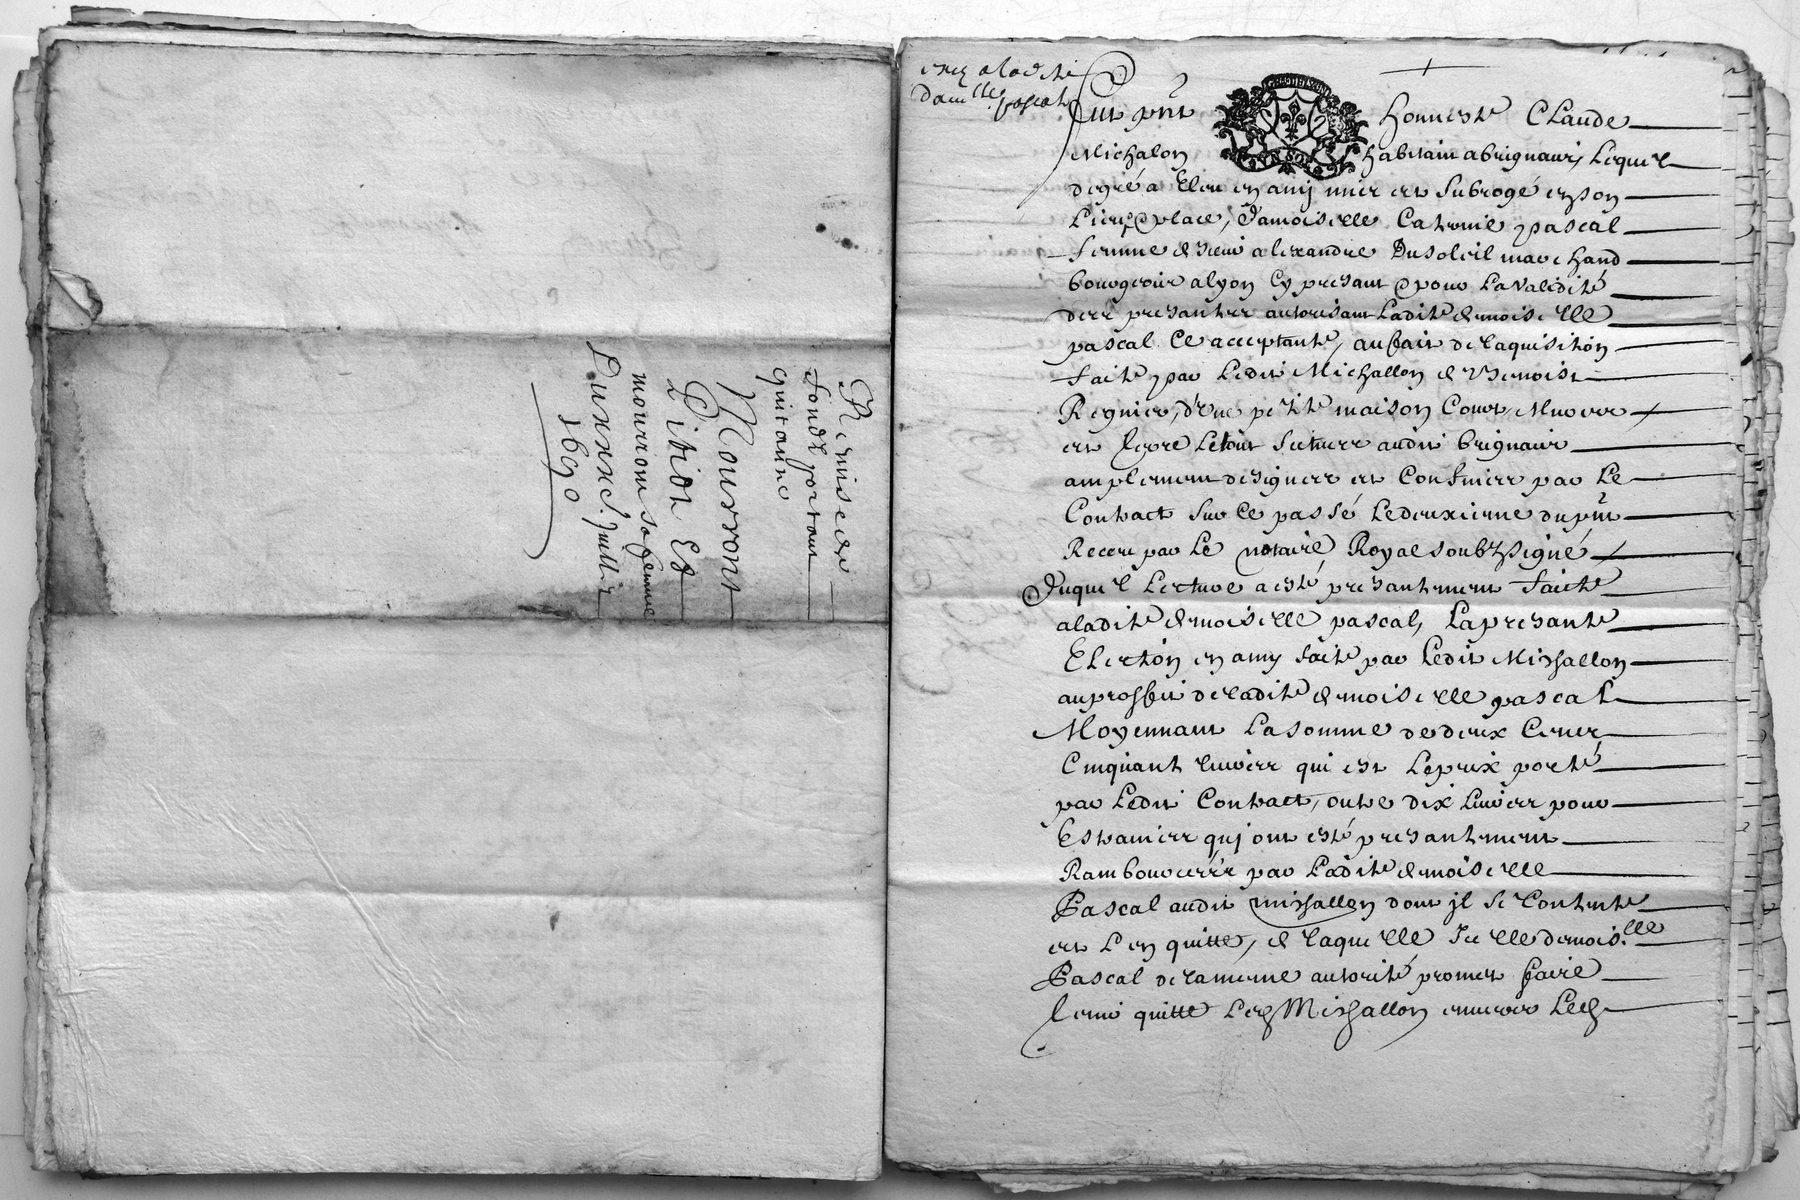 Remise de
fondz portant
quitance
Mourront
Pitiot Et
mourron sa femme
Du xxxe. Juillet
1690
exp a ladite
dam.lle pascal
fut pnt honneste Claude
Michalon habitant a brignaix, Lequel
de gré a Eleu en amy mier et subrogé en son
Lieu & place, damoiselle Catherine pascal
femme de sieur alexandre Dusoleil marchand
bourgeois a lyon cy presant & pour La validité
des presantes autorisant Ladite demoiselle
pascal ce acceptante, au fait de l'aquisition
faite par Ledit Michallon de Benoist
Regnier, d'une petite maison Court, Murs
et serve Le tout situes audit brignaix
amplement designes et Confines par Le
Contract sur ce passé Le deuxieme du pnt
Receu par Le notaire Royal soubzsigné
Duquel Lecture a esté presantement faite
a ladite demoiselle pascal, La presante
Election en amy faite par Ledit Michallon
au proffit de ladite demoiselle pascal
Moyennant La somme de deux Cents
Cinquante livres qui est Le prix porté
par Ledit Contract, outre dix Livres pour
Estraines qui ont esté presantement
Rambourcées par Ladite demoiselle
Pascal audit michallon dont il se Contente
et L'en quitte, de laquelle Icelle demois.lle
Pascal de la meme autorité promet faire
tenir quitte Led Michallon envers Led